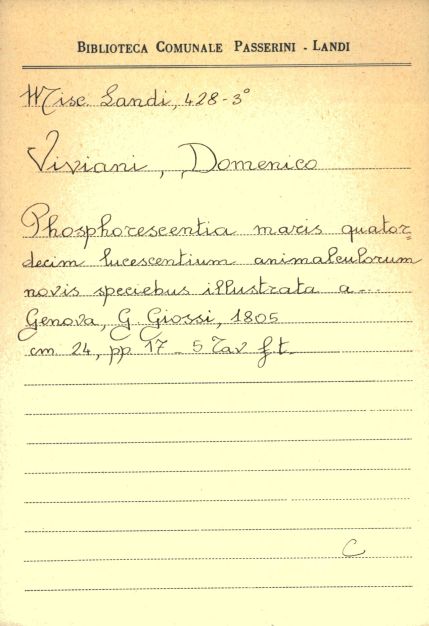 BIBLIOTECA COMUNALE PASSERINI - LANDI
Misc Landi, 428-3°
Viviani, Domenico
Phosphorescentia maris quator=
decim lucescentium animalculorum
novis speciebus illustrata a---
Genova, G. Giossi, 1805
cm 24, pp 17 - 5 Tav f.t.
C